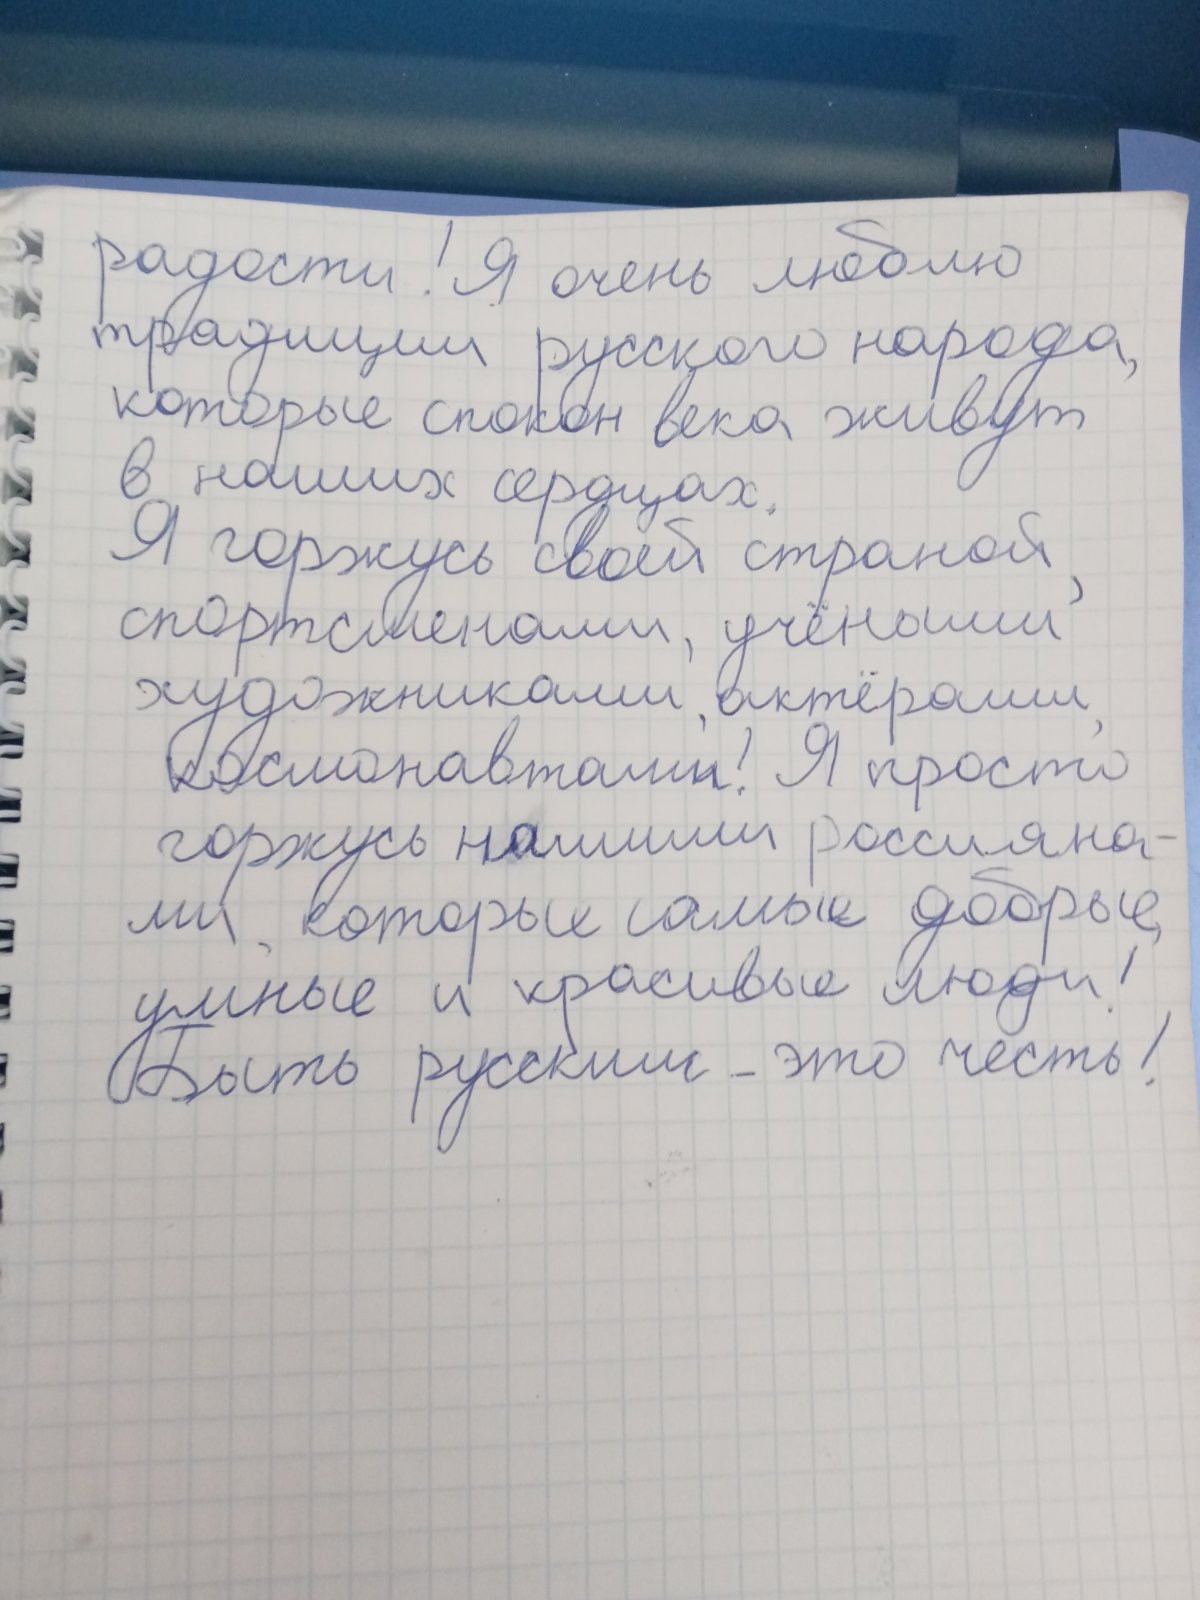 радости! Я очень люблю
традиции русского народа,
которые спокон века живут
в наших сердцах.
Я горжусь своей страной,
спортсменами, учёными
художниками, актёрами,
космонавтами! Я просто
горжусь нашими россияна-
ми, которые самые добрые,
умные и красивые люди!
Быть русским - это честь!